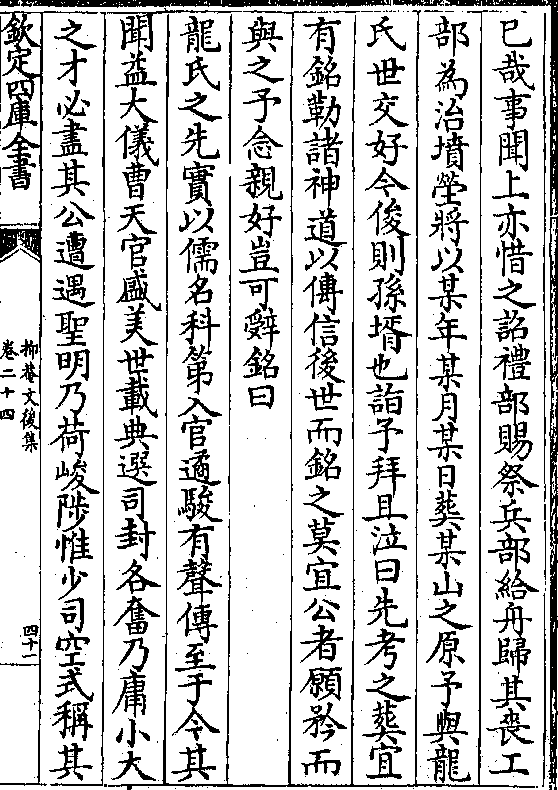 已哉事聞上亦惜之詔禮部賜祭兵部給舟歸其喪工
部為治墳塋將以某年某月某日葬某山之原予與龍
氏世交好令俊則孫壻也詣予拜且泣曰先考之葬宜
有銘勒諸神道以傳信後世而銘之莫宜公者願矜而
與之予念親好豈可辭銘曰
龍氏之先實以儒名科第入官遹駿有聲傳至于今其
聞益大儀曹天官盛美世載典選司封各奮乃庸小大
之才必盡其公遭遇聖明乃荷峻陟惟少司空式稱其
欽定四庫全書
抑菴文後集
卷二十四
四十一